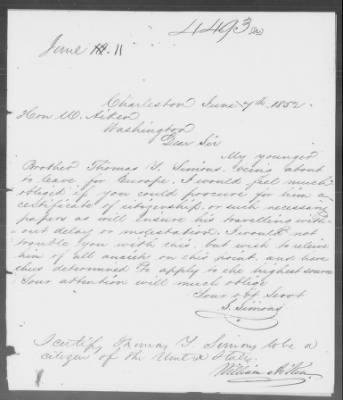 4493
June 11
Charleston June 7th 1852
Hon W. Aiken
Washington
Dear Sir
My younger
Brother Thomas Y. Simons being about
to leave for Europe, I would feel much
obliged if you could procure for him a
certificate of citizenship or such necessary
papers as will ensure his travelling with-
out delay or molestation. I would not
trouble you with this, but wish to relieve
him of all anxiety on this point, and have
thus determined to apply to the highest source
Your attention will much oblige
Your obt Servt
S. Simons
I certify Thomas Y. Simons to be a
citizen of the United States.
William Aiken